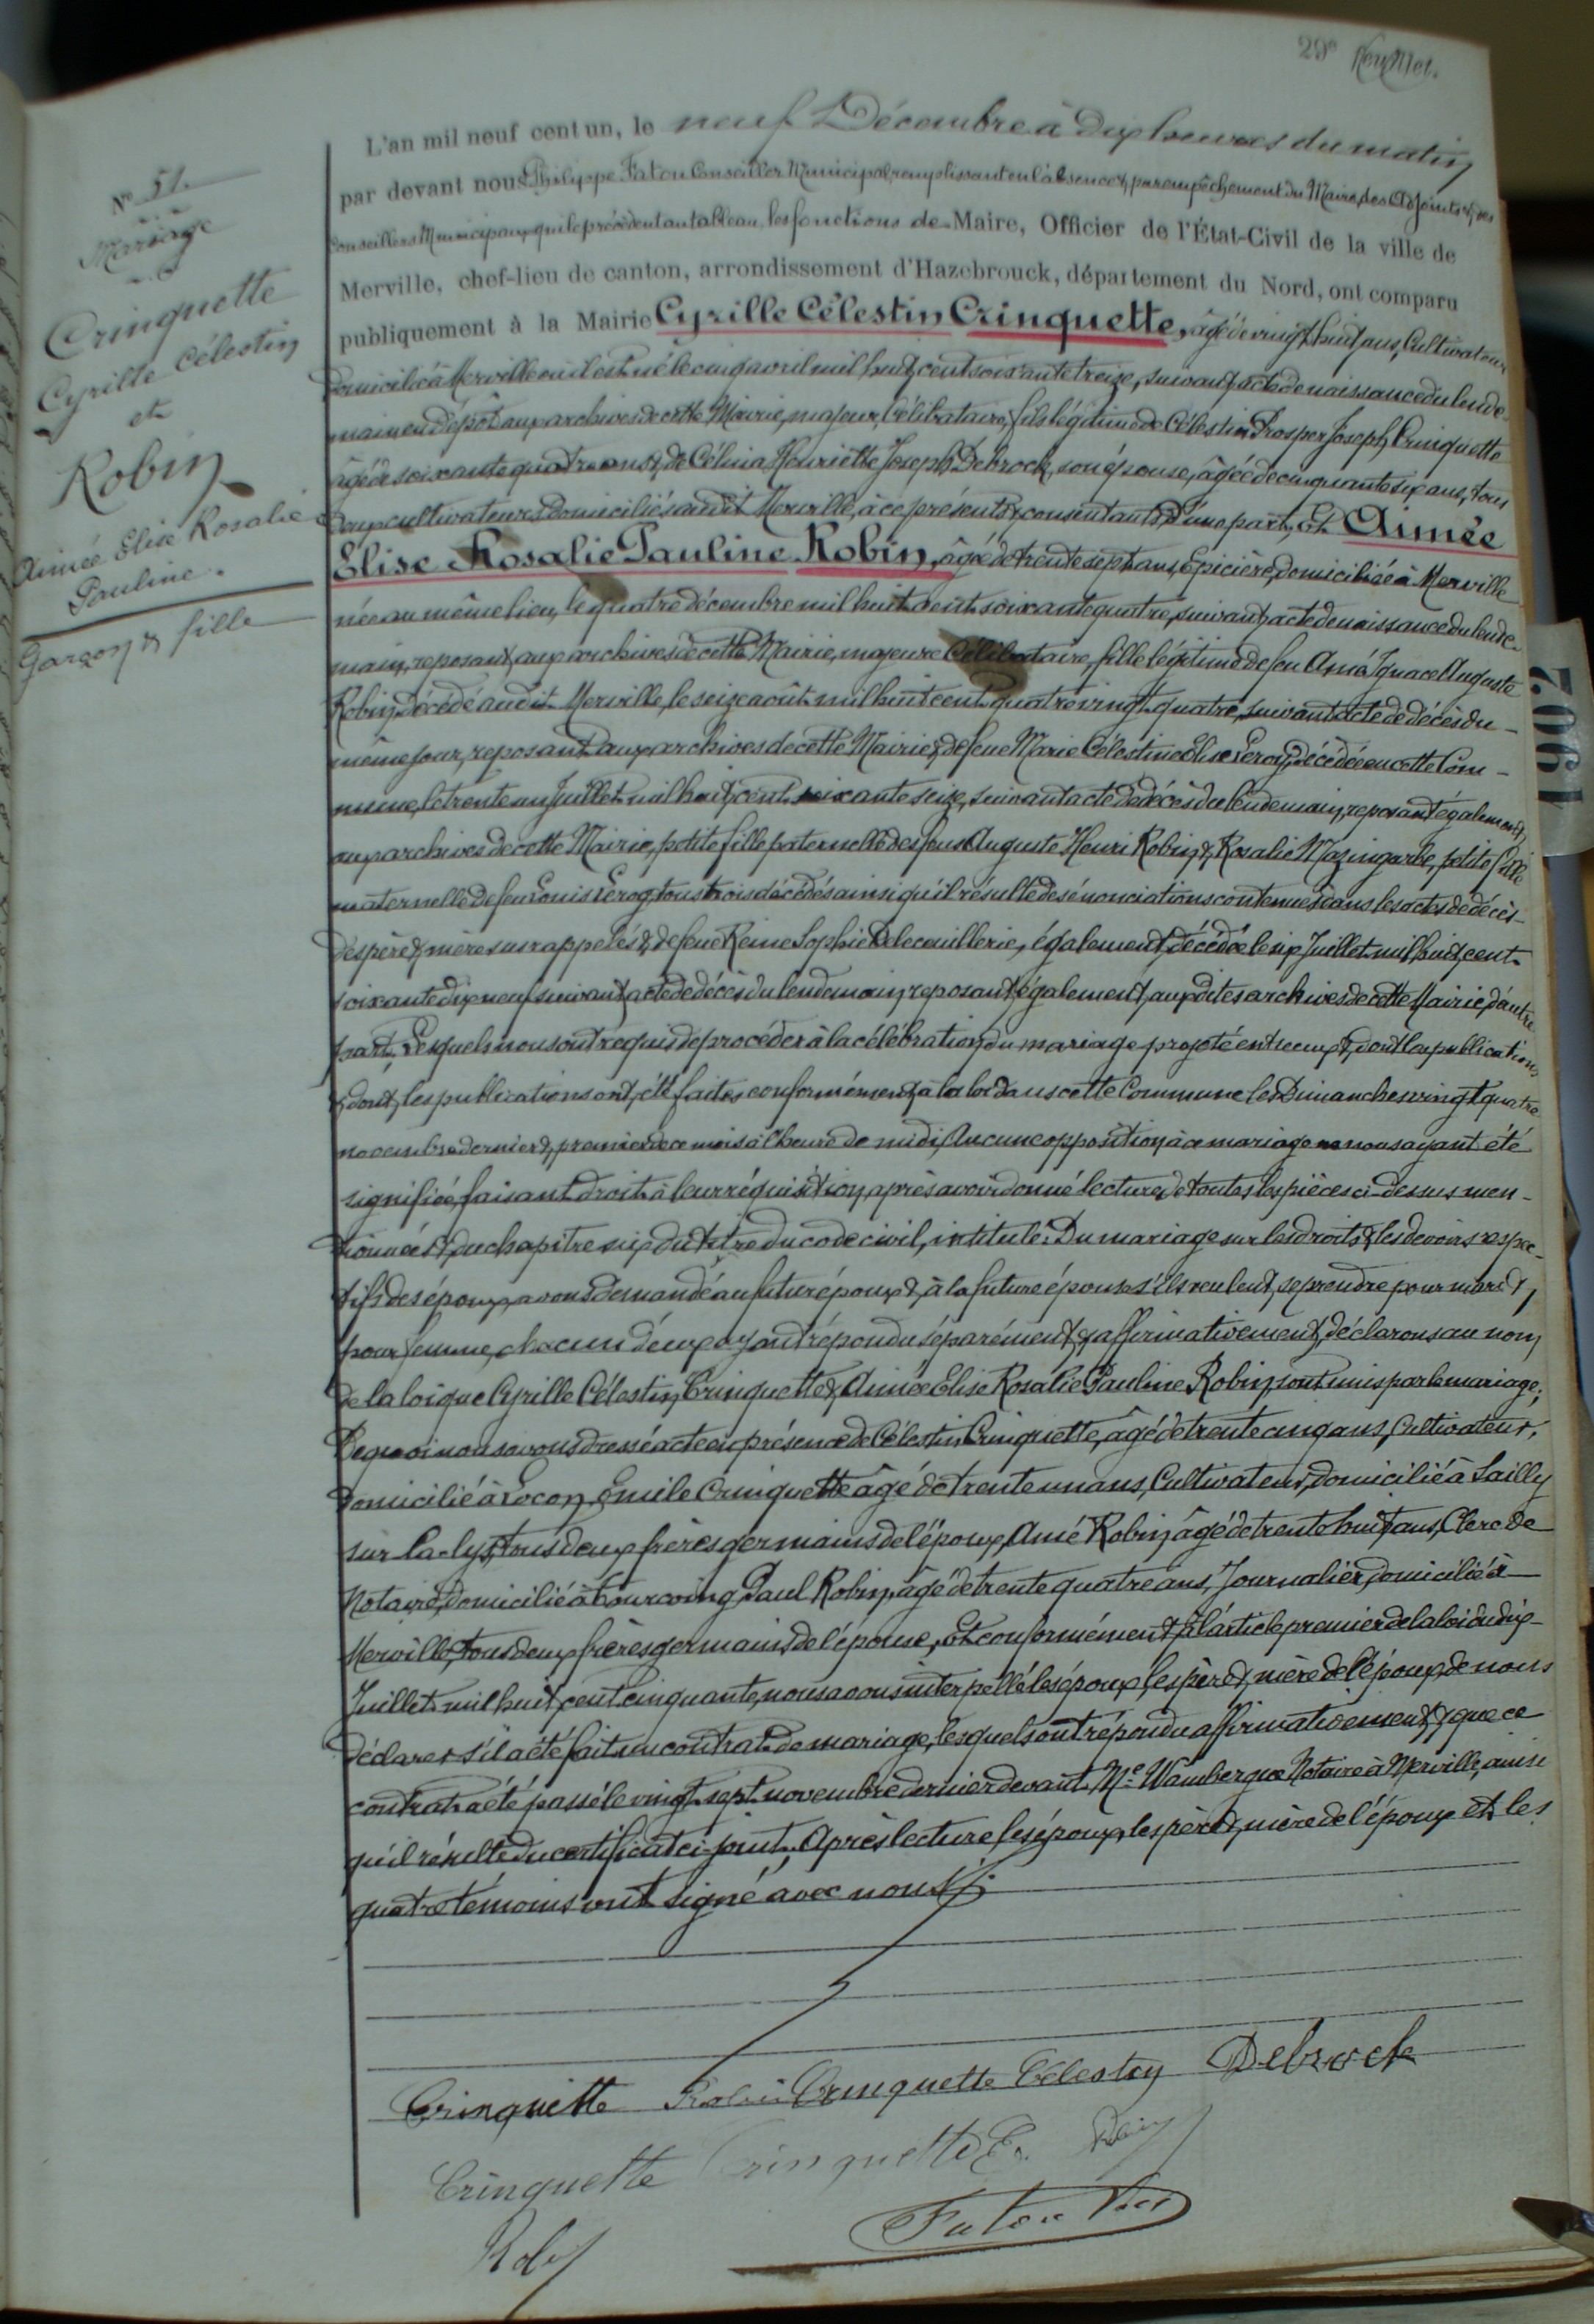 29e feuillet.
N° 51.
Mariage
Crinquette
Cyrille Célestin
et
Robin
Aimée Elise Rosalie
Pauline.
Garçon & fille
L'an mil neuf cent un, le neuf Décembre à dix heures du matin
par devant nous Philippe Faton Conseiller Municipal, remplissant en l'absence & par empêchement du Maire, des Adjoints & des
Conseillers Municipaux qui le précèdent au tableau, les fonctions de Maire, Officier de l'État-Civil de la ville de
Merville, chef-lieu de canton, arrondissement d'Hazebrouck, département du Nord, ont comparu
publiquement à la Mairie Cyrille Célestin Crinquette, âgé de vingt huit ans, Cultivateur
domicilié à Merville où il est né le cinq avril mil huit cent soixante treize, suivant acte de naissance du lende-
main en dépôt aux archives de cette Mairie, majeur, Célibataire, fils légitime de Célestin Prosper Joseph Crinquette
âgé de soixante quatre ans & de Célina Henriette Joseph Debrock, son épouse, âgée de cinquante six ans, tous
deux cultivateurs domiciliés audit Merville, à ce présents & consentants, d'une part, Et Aimée
Elise Rosalie Pauline Robin, âgée de trente sept ans, Epicière, domiciliée à Merville
née au même lieu, le quatre décembre mil huit cent soixante quatre, suivant acte de naissance du lende-
main, reposant aux archives de cette Mairie, majeure Célibataire, fille légitime de feu Amé Ignace Auguste
Robin décédé audit Merville, le seize août mil huit cent quatre vingt quatre, suivant acte de décès du
même jour, reposant aux archives de cette Mairie & de feue Marie Célestine Elise Leroy, décédée en cette Com-
mune, le trente un Juillet mil huit cent soixante seize, suivant acte de décès du lendemain, reposant également
aux archives de cette Mairie, petite fille paternelle des feus Auguste Henri Robin & Rosalie Mazingarbe, petite fille
maternelle de feu Louis Leroy, tous trois décédés ainsi qu'il résulte des énonciations contenues dans les actes de décès
des père & mère susrappelés & de feue Reine Sophie Delecaillerie, également décédée le six Juillet mil huit cent
soixante dix neuf suivant acte de décès du lendemain, reposant également aux dites archives de cette Mairie, d'autre
part, Lesquels nous ont requis de procéder à la célébration du mariage projeté entre eux & dont les publications
& dont les publications ont été faites conformément à la loi dans cette Commune les Dimanches vingt quatre
novembre dernier & premier de ce mois à l'heure de midi, Aucune opposition à ce mariage ne nous ayant été
signifiée, faisant droit à leur réquisition, après avoir donné lecture de toutes les pièces ci-dessus men-
tionnées & du chapitre six du titre du code civil, intitulé: Du mariage sur les droits & les devoirs respec-
tifs des époux, avons demandé au futur époux & à la future épouse s'ils veulent se prendre pour mari &
pour femme, chacun d'eux ayant répondu séparément & affirmativement, déclarons au nom
de la loi que Cyrille Célestin Crinquette & Aimée Elise Rosalie Pauline Robin sont unis par le mariage;
De quoi nous avons dressé acte en présence de Célestin Crinquette, âgé de trente cinq ans, Cultivateur,
domicilié à Locon, Emile Crinquette âgé de trente un ans, Cultivateur, domicilié à Sailly
sur la-lys, tous deux frères germains de l'époux, Amé Robin âgé de trente huit ans, Clerc de
Notaire, domicilié à Tourcoing, Paul Robin, âgé de trente quatre ans, Journalier, domicilié à
Merville, tous deux frères germains de l'épouse, Et conformément à l'article premier de la loi du dix
Juillet mil huit cent cinquante, nous avons interpellé les époux, les père & mère de l'époux, de nous
déclarer s'il a été fait un contrat de mariage, lesquels ont répondu affirmativement & que ce
contrat a été passé le vingt sept novembre dernier devant Me Wambergue Notaire à Merville, ainsi
qu'il résulte du certificat ci-joint; Après lecture les époux, les père & mère de l'époux et les
quatre témoins ont signé avec nous.
Crinquette Robin Crinquette Célestin Debrock
Crinquette Crinquette E. Robin
Robin Faton
1902